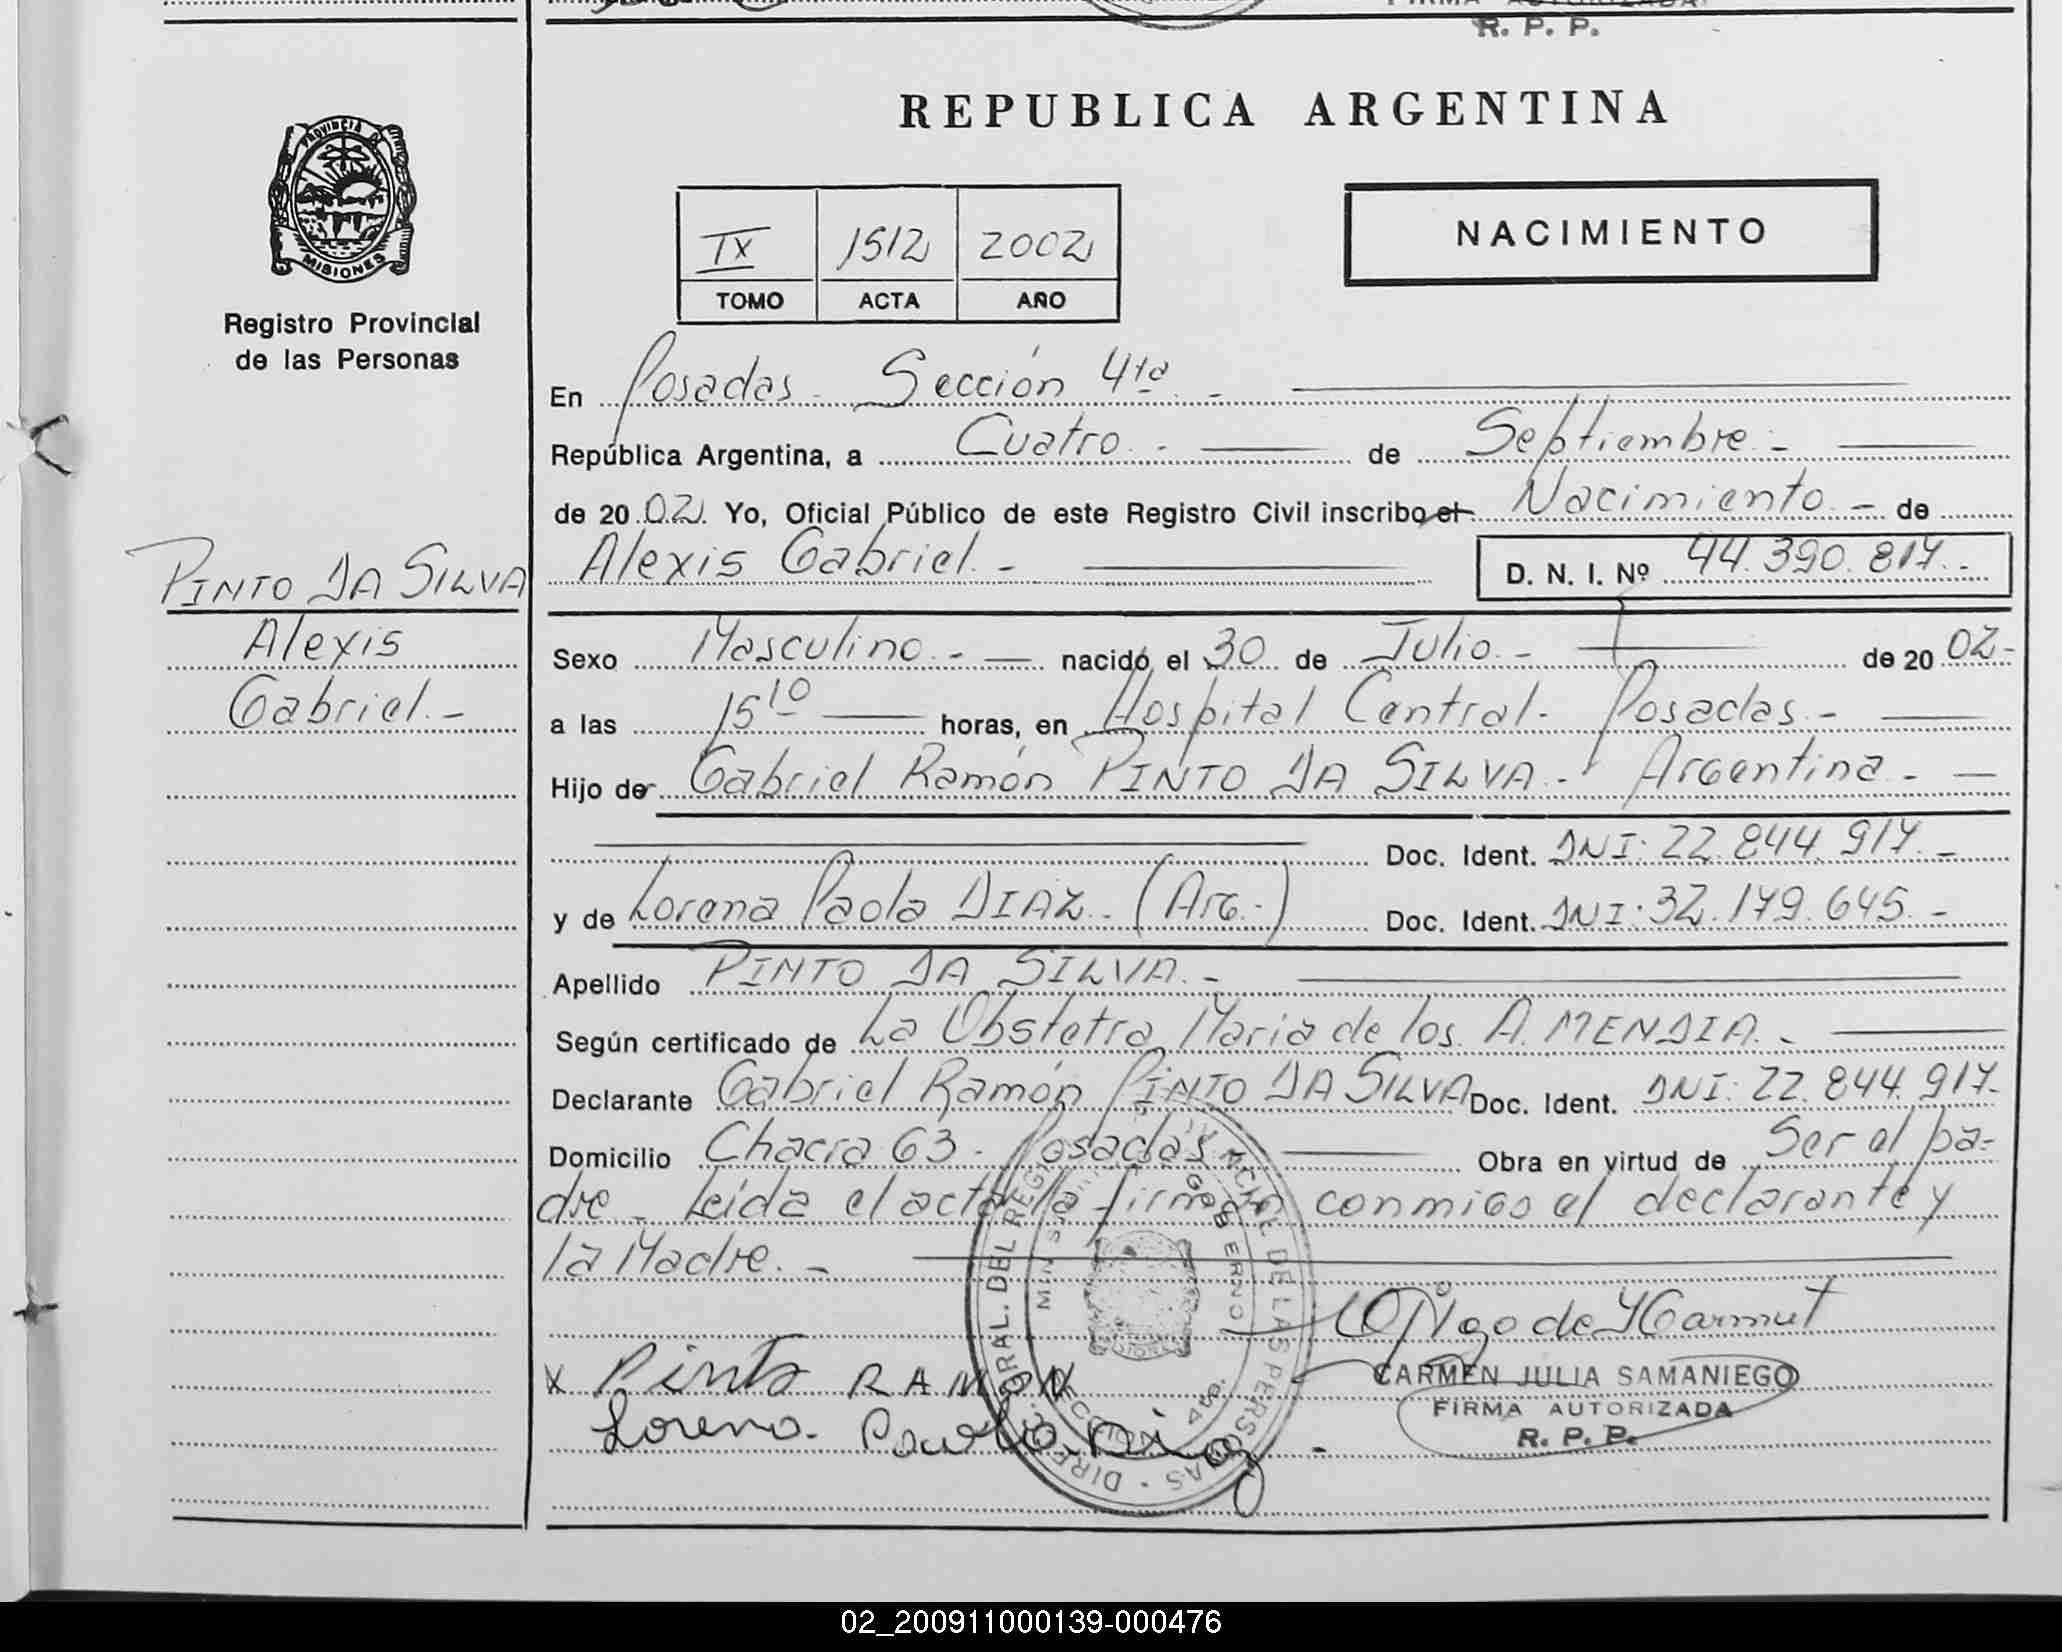 R. P. P.
REPUBLICA ARGENTINA
PROVINCIA DE
MISIONES
Registro Provincial
de las Personas
IX 1512 2002
TOMO ACTA AÑO
NACIMIENTO
En Posadas - Sección 4ta. -
República Argentina, a Cuatro. - de Septiembre. -
de 20 02. Yo, Oficial Público de este Registro Civil inscribo el Nacimiento. - de
Alexis Gabriel. - D. N. I. Nº 44.390.817. -
PINTO DA SILVA
Alexis
Gabriel. -
Sexo Masculino. - nacido el 30 de Julio. - de 20 02-
a las 15 10 horas, en Hospital Central. Posadas. -
Hijo de Gabriel Ramón PINTO DA SILVA. - Argentina. -
Doc. Ident. DNI: 22.844.917. -
y de Lorena Paola DIAZ. (Arg.) Doc. Ident. DNI: 32.179.645. -
Apellido PINTO DA SILVA. -
Según certificado de La Obstetra Maria de los A. MENDIA. -
Declarante Gabriel Ramón PINTO DA SILVA Doc. Ident. DNI: 22.844.917.-
Domicilio Chacra 63 - Posadas Obra en virtud de Ser el pa-
dre - Leida el acta la firman conmigo el declarante y
la Madre. -
X Pinto RAMON
Lorena. Paola Diaz
CARMEN JULIA SAMANIEGO
FIRMA AUTORIZADA
R. P. P.
02_200911000139-000476